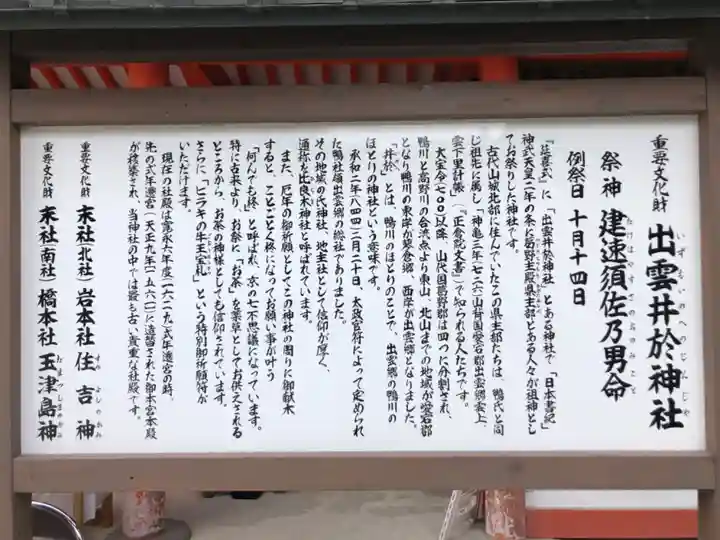 重要文化財 出雲井於神社
いずもいのへのじんじゃ
祭神 建速須佐乃男命
たけはやすさのおのみこと
例祭日 十月十四日
『延喜式』に「出雲井於神社」とある神社で、「日本書紀」
神武天皇二年の条に葛野主殿県主部とある人々が祖神とし
てお祭りした神社です。
古代山城北部に住んでいたこの県主部たちは、鴨氏と同
じ祖先に属し「神亀三年(七二六)山背国愛宕郡出雲郷雲上、
雲下里計帳」(『正倉院文書』)で知られる人たちです。
大宝令(七〇〇)以降、山代国葛野郡は四つに分割され、
鴨川と高野川の合流点より東山、北山までの地域が愛宕郡
となり鴨川の東岸が蓼倉郷、西岸が出雲郷となりました。
「井於」とは、鴨川のほとりのことで、出雲郷の鴨川の
ほとりの神社という意味です。
承和二年(八四四)二月二十日、太政官符によって定められ
た鴨社領出雲郷の総社でありました。
その地域の氏神社、地主社として信仰が厚く、
通称を比良木神社と呼ばれています。
また、厄年の御祈願としてこの神社の周りに御献木
すると、ことごとく柊になってお願い事が叶う
「何んでも柊」と呼ばれ、京の七不思議になっています。
特に古来より、お祭に「お茶」を薬草としてお供えされる
ところから、お茶の神様としても信仰されています。
さらに、「ヒラキの牛王宝札」という特別御祈願符が
いただけます。
現在の社殿は寛永六年度(一六二九)式年遷宮の時、
先の式年遷宮(天正九年(一五八一))に造替された御本宮本殿
が移築され、当神社の中では最も古い貴重な社殿です。
重要文化財 末社(北社)岩本社 住吉神
すみよしのかみ
重要文化財 末社(南社)橋本社 玉津島神
たまつしまのかみ